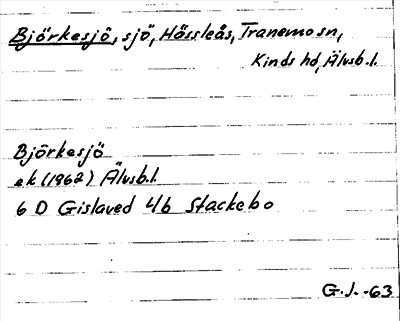 Björkesjö, sjö, Hässleås, Tranemo sn,
Kinds hd, Älvsb.l.
Björkesjö
ek (1962) Älvsb.l.
6 D Gislaved 4b Stackebo
G.J. -63